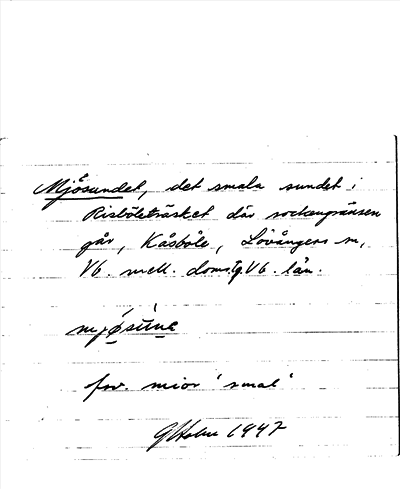 Mjösundet, det smala sundet i
Risböleträsket där sockengränsen
går, Kåsböle, Lövångers sn,
Vb. mell. doms. Vb. län.
mjösúnẹ
fsv. mior 'smal'
G Holm 1947